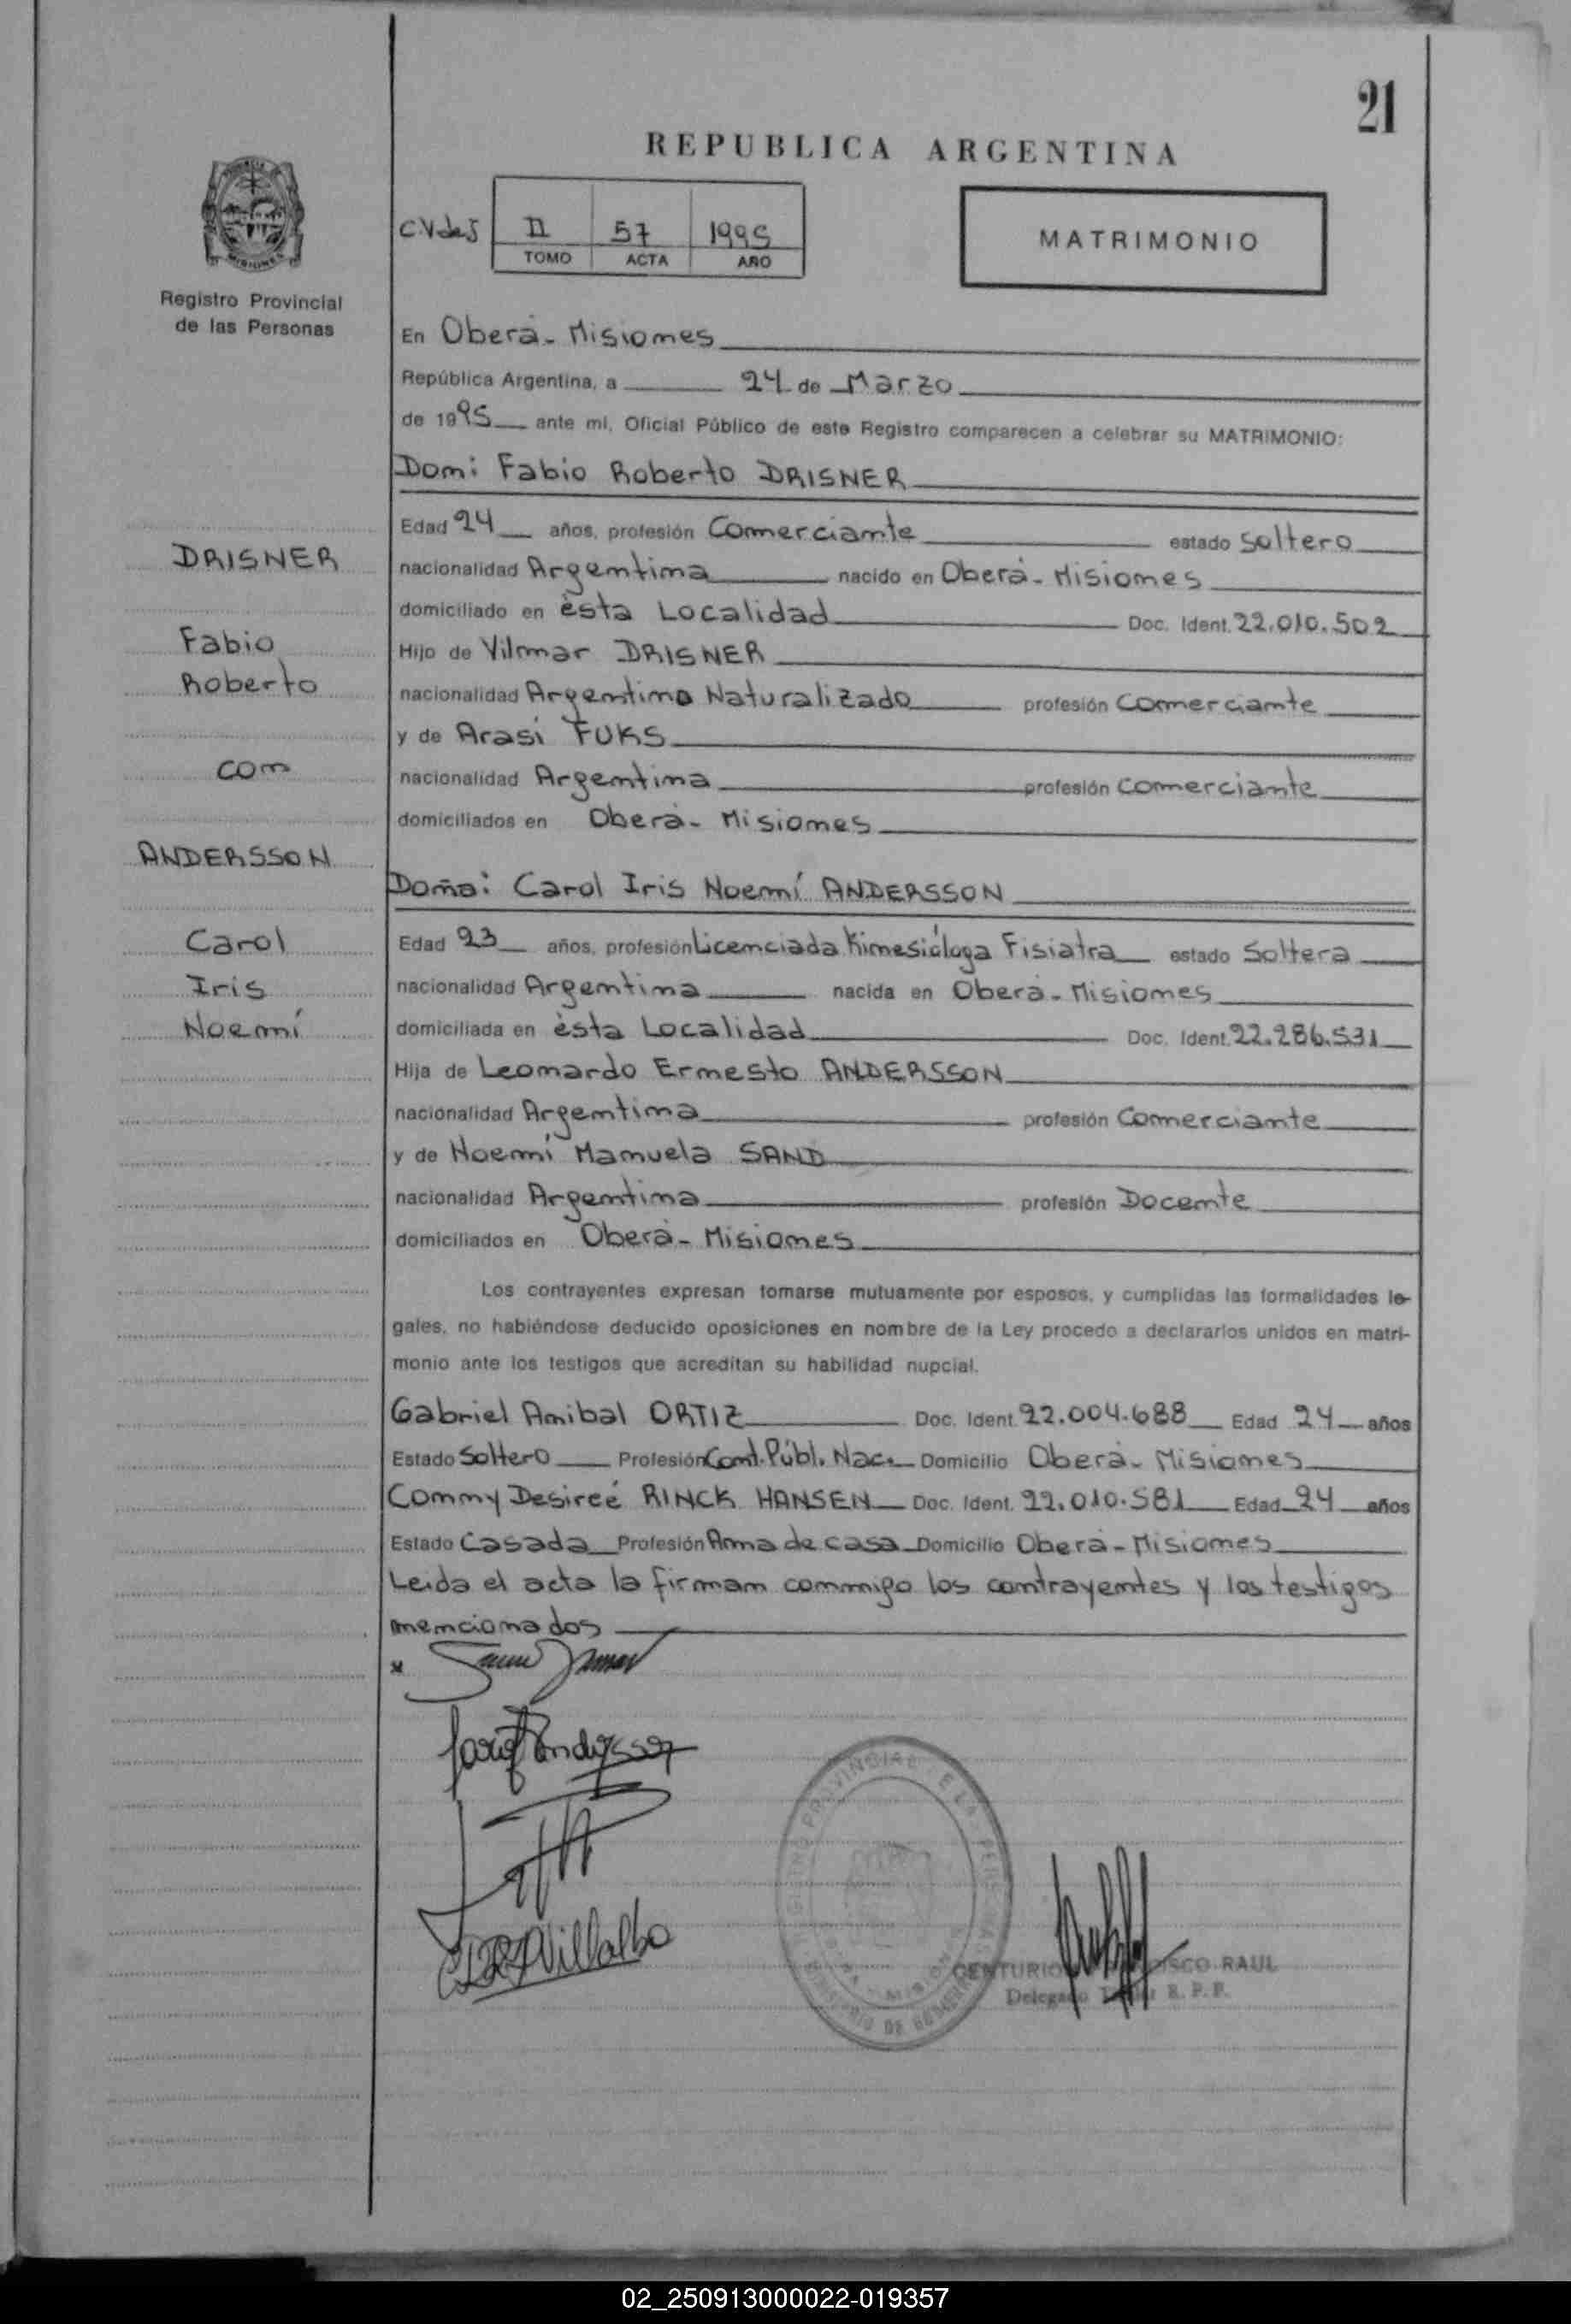 21
REPUBLICA ARGENTINA
C.V de J II 57 1995
TOMO ACTA AÑO
MATRIMONIO
Registro Provincial
de las Personas
En Oberá - Misiones
República Argentina, a 24 de Marzo
de 1995 ante mi, Oficial Público de este Registro comparecen a celebrar su MATRIMONIO:
Don: Fabio Roberto DRISNER
Edad 24 años, profesión Comerciante estado Soltero
nacionalidad Argentina nacido en Oberá - Misiones
domiciliado en ésta Localidad Doc. Ident. 22.010.502
Hijo de Vilmar DRISNER
nacionalidad Argentino Naturalizado profesión Comerciante
y de Arasi FUKS
nacionalidad Argentina profesión Comerciante
domiciliados en Oberá - Misiones
Doña: Carol Iris Noemí ANDERSSON
Edad 23 años, profesión Licenciada Kinesióloga Fisiatra estado Soltera
nacionalidad Argentina nacida en Oberá - Misiones
domiciliada en ésta Localidad Doc. Ident. 22.286.531
Hija de Leonardo Ernesto ANDERSSON
nacionalidad Argentina profesión Comerciante
y de Noemí Manuela SAND
nacionalidad Argentina profesión Docente
domiciliados en Oberá - Misiones
DRISNER
Fabio
Roberto
con
ANDERSSON
Carol
Iris
Noemí
Los contrayentes expresan tomarse mutuamente por esposos, y cumplidas las formalidades le-
gales, no habiéndose deducido oposiciones en nombre de la Ley procedo a declararlos unidos en matri-
monio ante los testigos que acreditan su habilidad nupcial.
Gabriel Anibal ORTIZ Doc. Ident. 22.004.688 Edad 24 años
Estado Soltero Profesión Cont. Públ. Nac. Domicilio Oberá - Misiones
Conny Desireé RINCK HANSEN Doc. Ident. 22.010.581 Edad 24 años
Estado Casada Profesión Ama de casa Domicilio Oberá - Misiones
Leída el acta la firman conmigo los contrayentes y los testigos
mencionados
Villalba
RAUL
Delegado R. P. P.
02_250913000022-019357